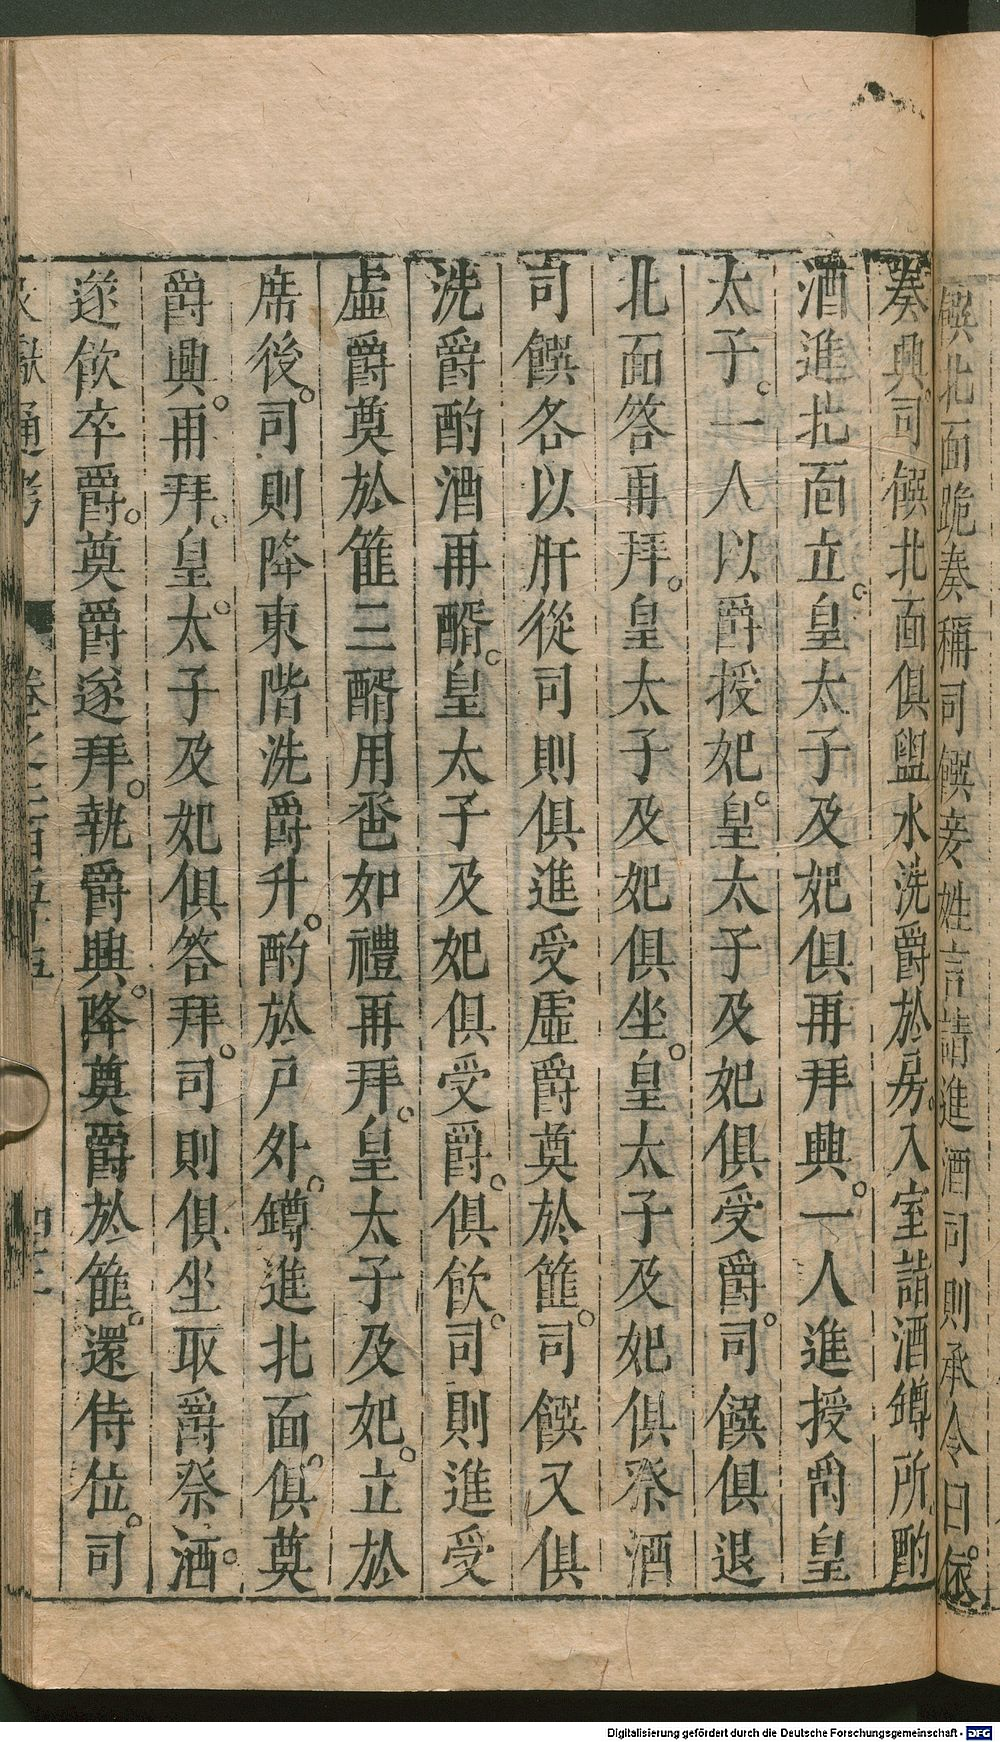 饌北面跪奏稱司饌妾姓言請進酒司則承令曰依
奏興司饌北面俱盥水洗爵於房入室詣酒罇所酌
酒進北面立皇太子及妃俱再拜興一人進授爵皇
太子一人以爵授妃皇太子及妃俱受爵司饌俱退
北面答再拜皇太子及妃俱坐皇太子及妃俱祭酒
司饌各以肝從司則俱進受虛爵奠於篚司饌又俱
洗爵酌酒再酳皇太子及妃俱受爵俱飲司則進受
虛爵奠於篚三酳用巹如禮再拜皇太子及妃立於
席後司則降東階洗爵升酌於戶外罇進北面俱奠
爵興再拜皇太子及妃俱答拜司則俱坐取爵祭酒
遂飲卒爵奠爵遂拜執爵興降奠爵於篚還侍位司
獻通考 卷之二百五十五
Digitalisierung gefördert durch die Deutsche Forschungsgemeinschaft - DFG